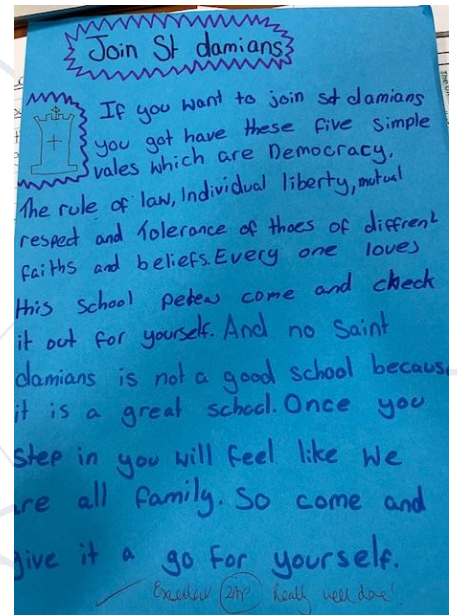 Join St damians
If you want to join sd damians
you got have these five simple
vales which are Democracy,
The rule of law, Individual liberty, mutual
respect and Tolerance of thoes of diffrent
faiths and beliefs. Every one loves
this school come and check
it out for yourself. And no Saint
damians is not a good school becaus
it is a great school. Once you
step in you will feel like we
are all family. So come and
give it a go for yourself.
Excellent 2AP Really well done!